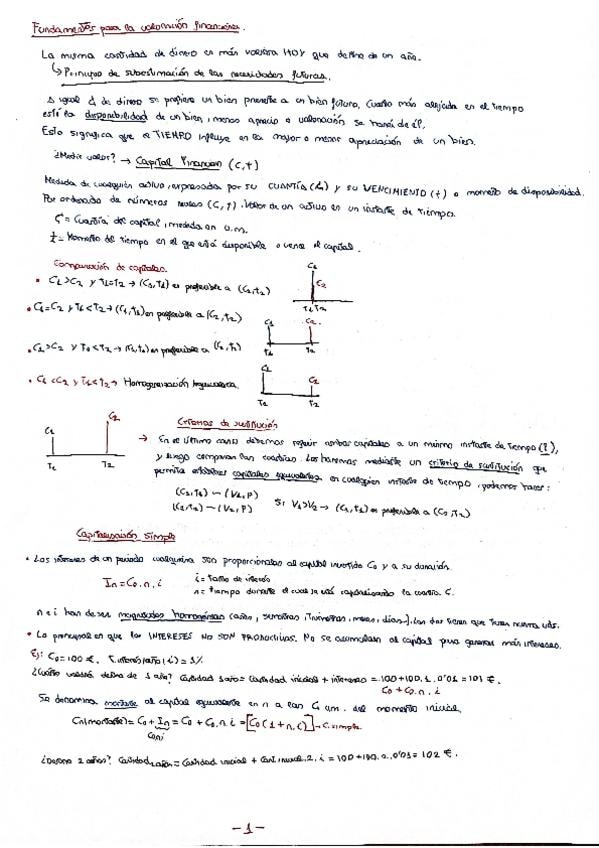 Fundamentos para la valoración financiera.
La misma cantidad de dinero es más valiosa HOY que dentro de un año.
↳ Principio de subestimación de las necesidades futuras.
A igual de dinero se prefiere un bien presente a un bien futuro, cuanto más alejada en el tiempo
esté la disponibilidad de un bien, menos aprecio o valoración se hará de él.
Esto significa que el TIEMPO influye en la mayor o menor apreciación de un bien.
¿Medir valor? → Capital Financiero (C,t)
Medida de cualquier activo, expresada por su CUANTÍA y su VENCIMIENTO (t) o momento de disponibilidad.
Par ordenado de números reales (C, t). Valor de un activo en un instante de tiempo.
C = Cuantía del capital, medida en u.m.
t = Momento del tiempo en el que está disponible o vence el capital.
Comparación de capitales.
• C1 > C2 y T1 = T2 → (C1, T1) es preferible a (C2, T2)
C1
C2
T1 T2
• C1 = C2 y T1 < T2 → (C1, T1) es preferible a (C2, T2)
C1 C2
T1 T2
• C1 > C2 y T1 < T2 → (C1, T1) es preferible a (C2, T2)
C1
C2
T1 T2
• C1 < C2 y T1 < T2 → Homogeneización
C1 C2
T1 T2
Criterios de sustitución
→ En el último caso debemos referir ambos capitales a un mismo instante de tiempo (P),
y luego comparar las cuantías. Los haremos mediante un criterio de sustitución que
permita establecer capitales equivalentes en cualquier instante de tiempo, podemos hacer:
(C1, T1) ~ (V1, P)
(C2, T2) ~ (V2, P)
Si V1 > V2 → (C1, T1) es preferible a (C2, T2)
Capitalización simple
• Los intereses de un periodo cualquiera son proporcionales al capital invertido C0 y a su duración.
In = C0 . n . i
i = Tanto de interés
n = tiempo durante el cual se está capitalizando la cuantía C.
n e i han de ser magnitudes homogéneas (años, semestres, trimestres, meses, días...). Las dos tienen que tener misma uds.
• Lo principal es que los INTERESES NO SON PRODUCTIVOS. No se acumulan al capital para generar más intereses.
Ej: C0 = 100 €, T. interés/año (i) = 1%
¿Cuánto valdrá dentro de 1 año? Cantidad 1 año = Cantidad inicial + intereses = 100 + 100 . 1 . 0'01 = 101 €.
C0 + C0 . n . i
Se denomina montante al capital equivalente en n a las C0 u.m. del momento inicial.
Cn (montante) = C0 + In = C0 + C0 . n . i = [C0 (1 + n . i)] → C. simple
C0ni
¿Dentro 2 años? Cantidad 2 años = Cantidad inicial + Cant. inicial . 2 . i = 100 + 100 . 2 . 0'01 = 102 €.
- 1 -